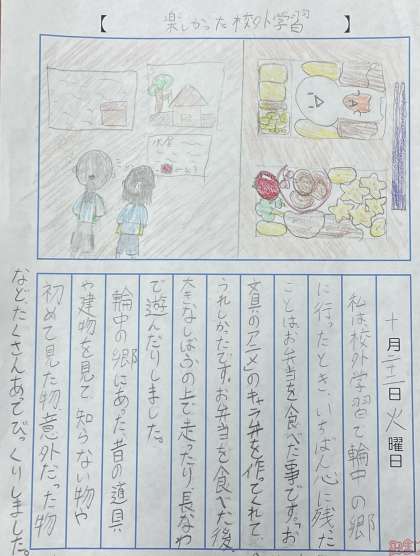 【 楽しかった校外学習 】
十月二十二日火曜日
私は校外学習で輪中の郷
に行ったとき、いちばん心に残た
ことはお弁当を食べた事です。お
文具のアニメのキャラ弁を作ってくれて、
うれしかたです。お弁当を食べた後、
大きなしばふの上で走ったり、長なわ
で遊んだりしました。
輪中の郷にあった昔の道具
や建物を見て、知らない物や
初めて見た物、意外だった物
などたくさんあってびっくりしました。